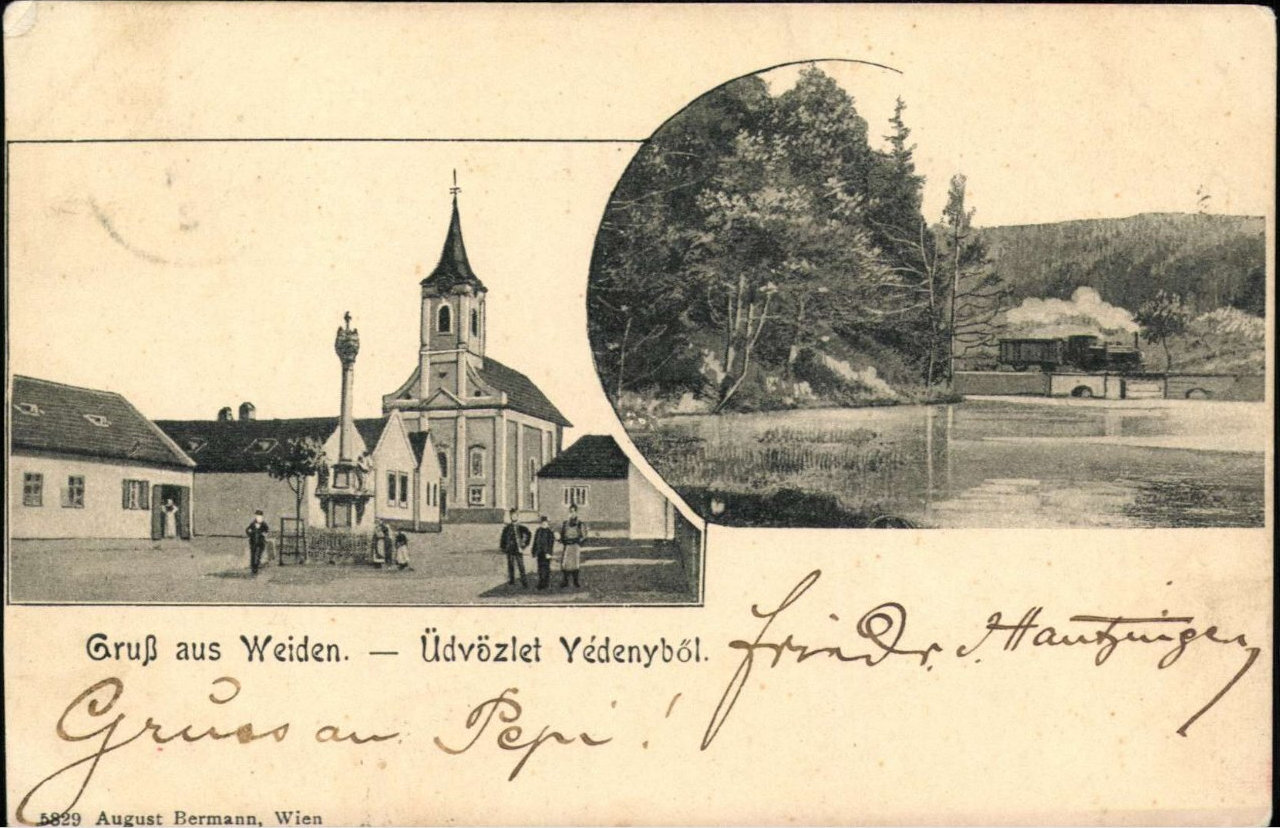 Gruß aus Weiden. — Üdvözlet Védenyből.
Friedr. Hantzinger
Gruss an Pepi!
5829 August Bermann, Wien